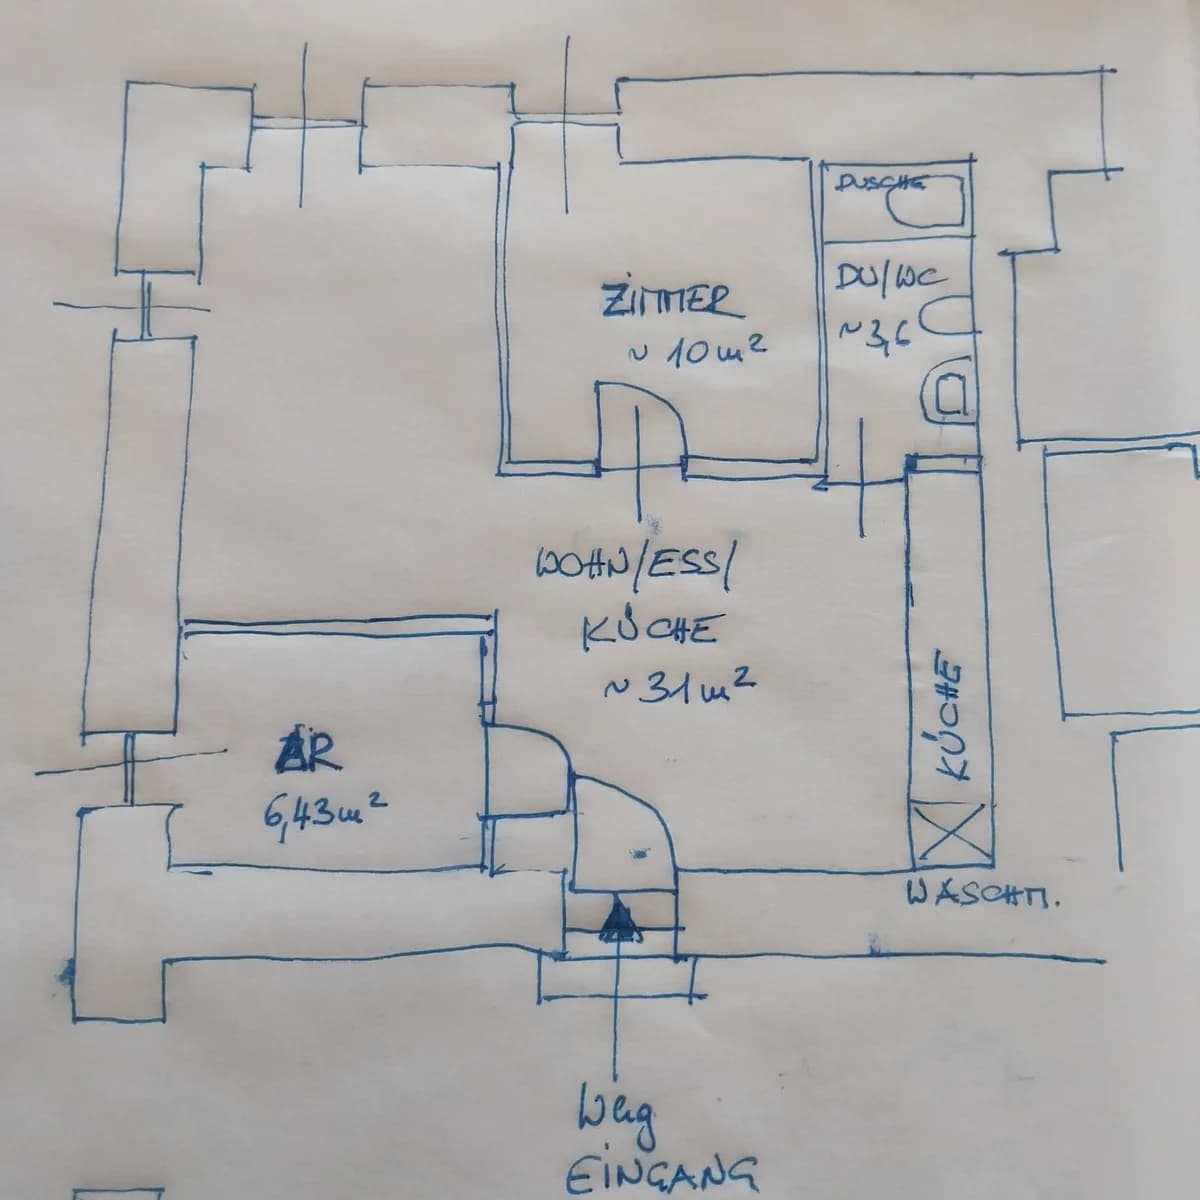 DUSCHE
ZIMMER
~ 10 m²
DU/WC
~ 3,6
WOHN/ESS/
KÜCHE
~ 31 m²
KÜCHE
AR
6,43 m²
WASCHM.
Whg
EINGANG